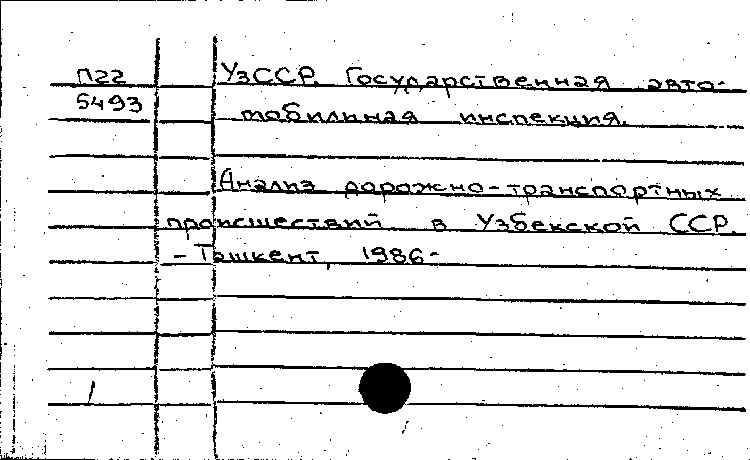 П22 УзССР. Государственная авто-
5493 мобильная инспекция.
Анализ дорожно-транспортных
происшествий в Узбекской ССР.
- Ташкент, 1986-
1